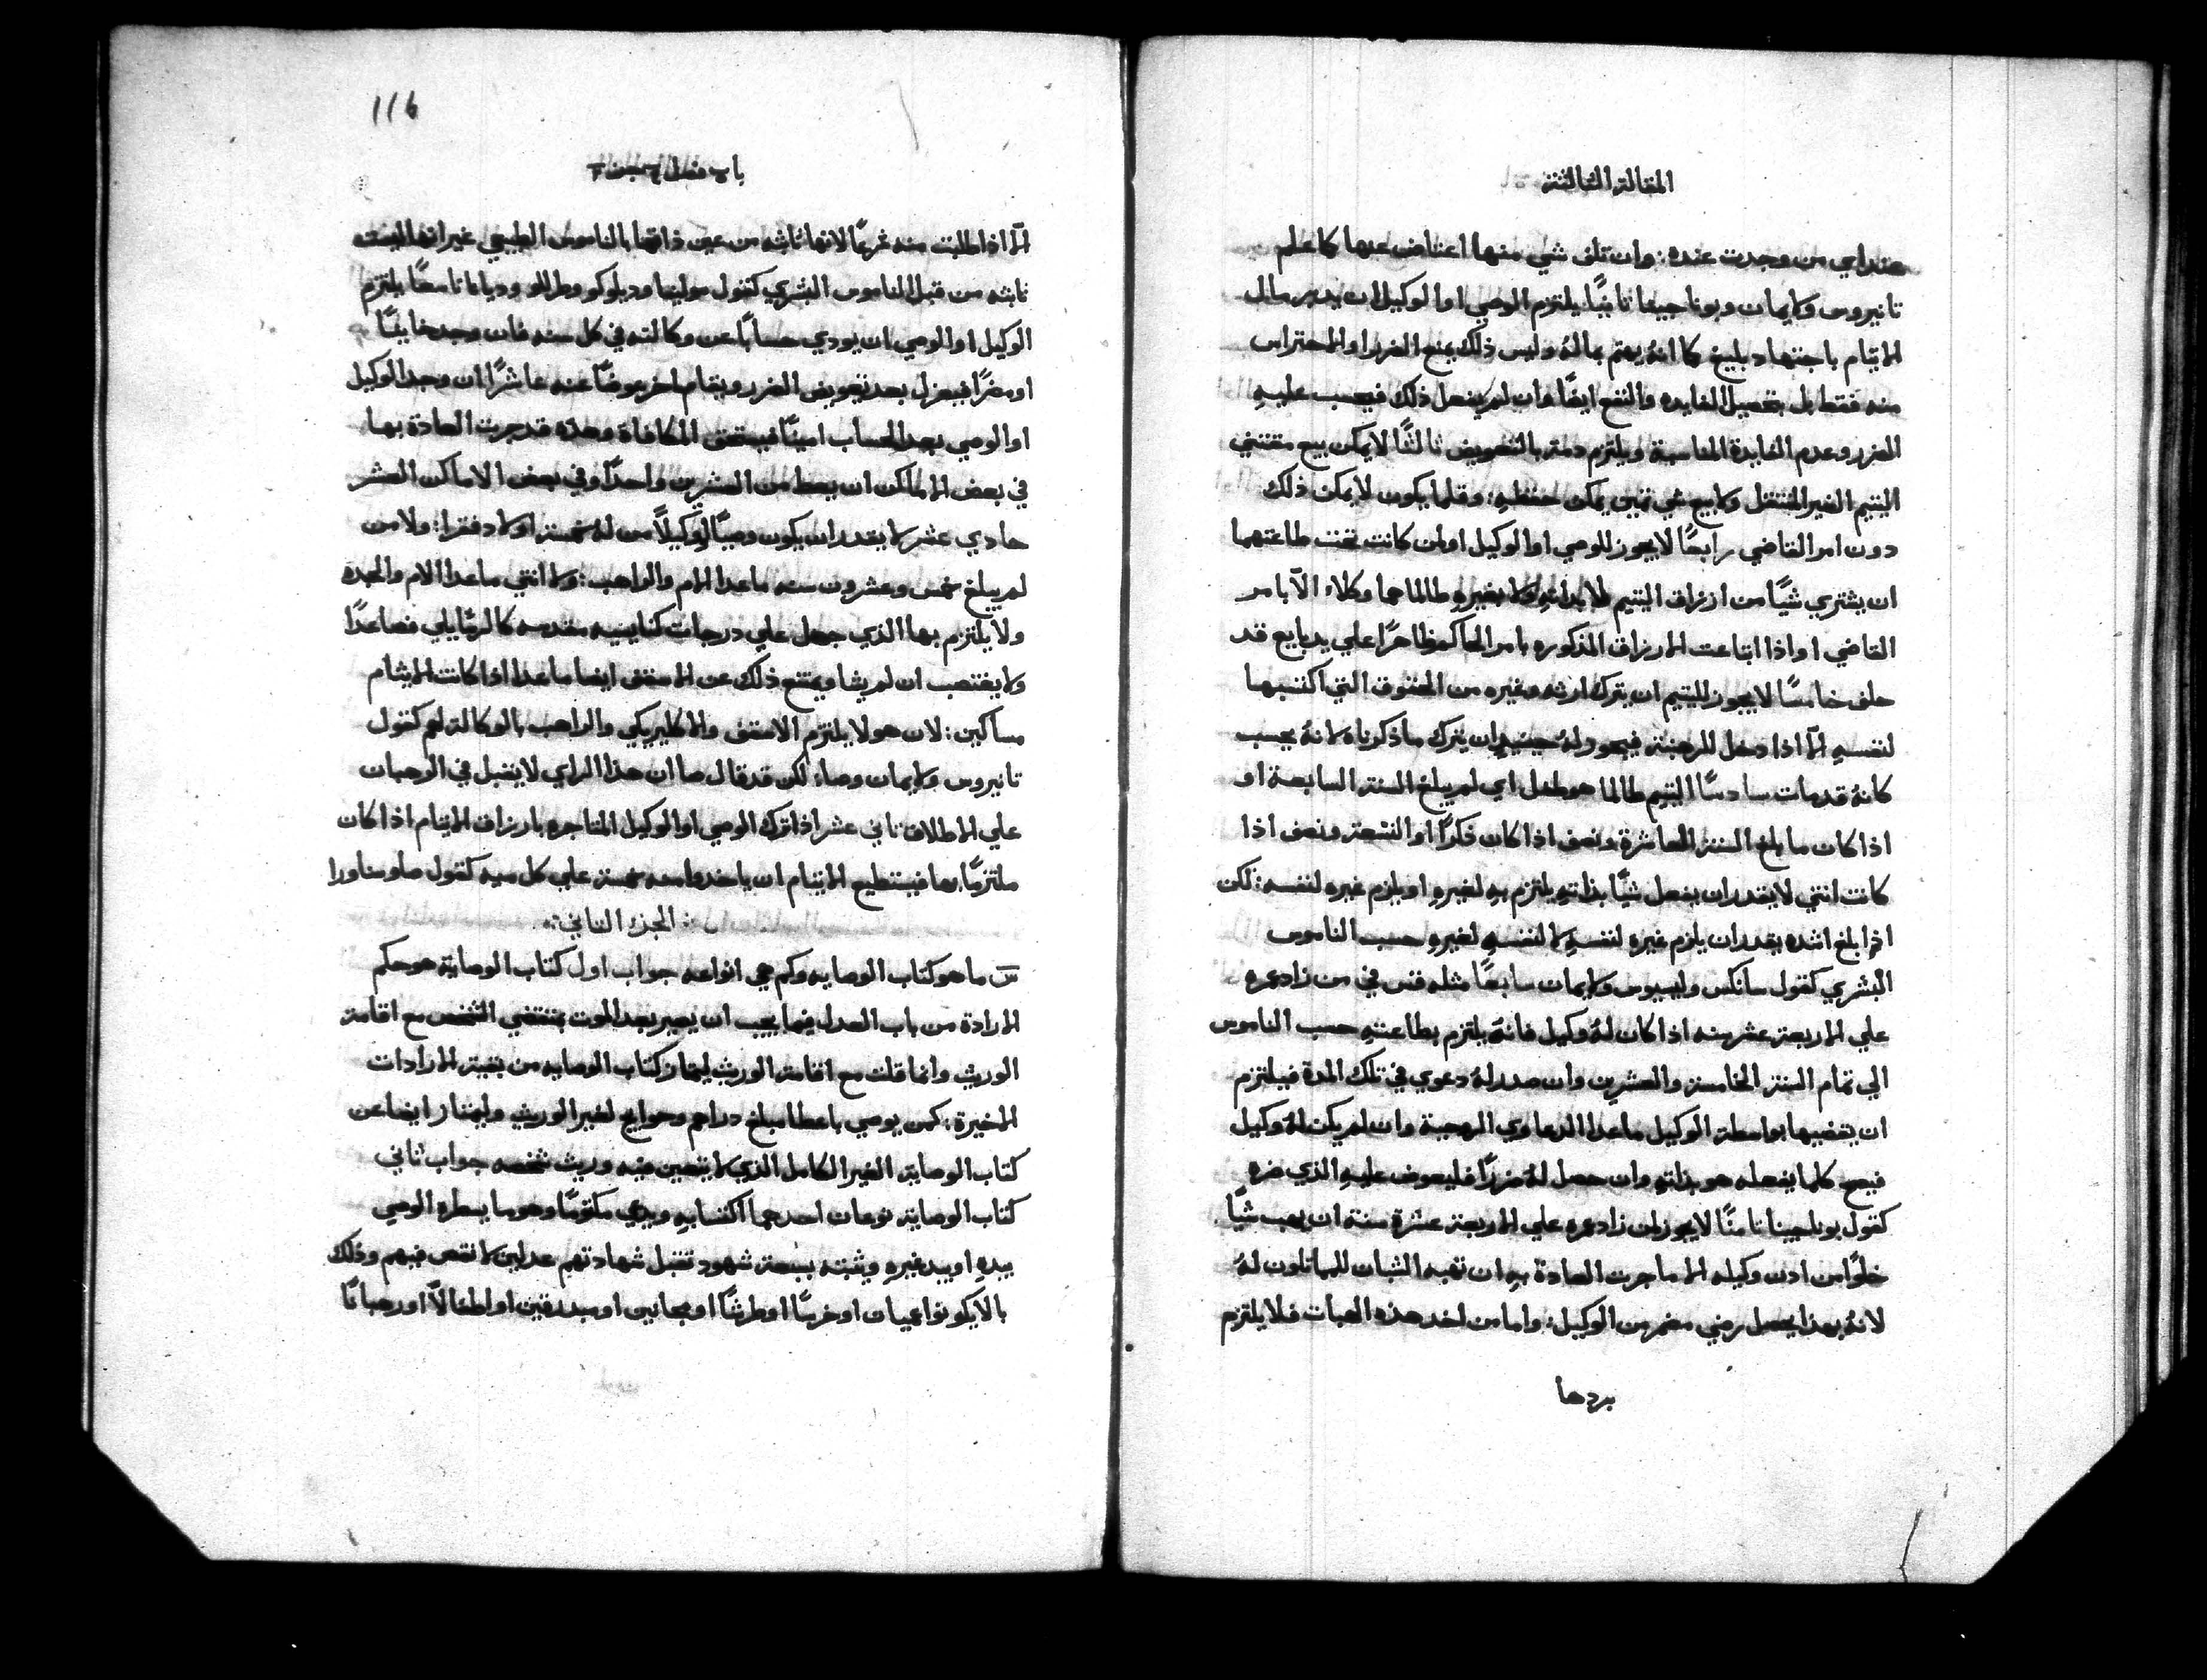 المقالة الثالثة
عند اي من وجدت عنده: وان تلف شي منها اعتاض عنها كما علم
تانيروس ولايمان وبوناجينا ثانيًا يلتزم الوصي او الوكيل ان يدبر مال
الايتام باجتهاد بليغ كما انهُ يهتم بمالهُ وليس ذلك بمنع الضرر او الاحتراس
منه فقط بل بتحصيل الفايده والنفع ايضًا وان لم يفعل ذلك فيحسب عليهِ
الضرر وعدم الفايدة المناسبة ويلتزم دمته بالتعويض ثالثًا لا يمكن بيع مقتني
اليتيم الغير المنتقل ولا بيع شي ثمين يمكن حفظهِ: وقلما يكون لا يمكن ذلك
دون امر القاضي رابعًا لا يجوز للوصي او الوكيل اولمن كانت تحت طاعتهما
ان يشتري شيًا من ارزاق اليتيم لا بذاتهِ ولا بغيرهِ طالما هما وكلاء الّا بامر
القاضي او اذا ابتاعت الارزاق المذكوره بامر الحاكم ظاهرًا علي يد بايع قد
حلف خامسًا لا يجوز لليتيم ان يترك ارثه وغيره من الحقوق التي اكتسبها
لنفسهِ الّا اذا دخل للرهبنة فيجوز لهُ حينيذٍ ان يترك ما ذكرناه لانهُ يحسب
كانهُ قد مات سادسًا اليتيم طالما هو طفل اي لم يبلغ السنة السابعة او
اذا كان ما بلغ السنة العاشرة ونصف اذا كان ذكرًا او التسعة ونصف اذا
كانت انثي لا يقدر ان يفعل شيًا بذاتهِ يلتزم بهِ لغيرهِ او يلزم غيره لنفسه: لكن
اذا بلغ اشده يقدر ان يلزم غيره لنفسهِ لا لنفسهِ لغيرهِ حسب الناموس
البشري كقول سانكس وليسيوس ولايمان سابعًا مثله قس في من زاد عمره
علي الاربعة عشر سنه اذا كان لهُ وكيل فانهُ يلتزم بطاعتهِ حسب الناموس
الي تمام السنة الخامسة والعشرين وان صدر لهُ دعوي في تلك المدة فيلتزم
ان يقضيها بواسطة الوكيل ماعدا الدعاوي الروحية وان لم يكن لهُ وكيل
فيصح كلما يفعله هو بذاتهِ وان حصل لهُ ضررًا فليعوض عليهِ الذي ضره
كقول بوناجينا ثامنًا لا يجوز لمن زاد عمره علي الاربعة عشرة سنة ان يهب شيًا
خلوًا من اذن وكيله الا ما جرت العادة بهِ ان تهبه الشبان المماثلون لهُ
لانهُ بهذا يحصل رضي مضمر من الوكيل: واما من اخذ هذه الهبات فلا يلتزم
بردها
116
باب فصل
الّا اذا طلبت منه غرمًا لانها ثابته من عين ذاتها بالناموس الطبيعي غير انها ليست
ثابته من قبل الناموس البشري كقول مولينا ودبلوكو وطاللو وديانا تاسعًا يلتزم
الوكيل او الوصي ان يودي حسابًا عن وكالته في كل سنه فان وجد خاينًا
او مضرًا فيعزل بعد تعويض الضرر ويقام اخر عوضًا عنه عاشرًا ان وجد الوكيل
او الوصي بعد الحساب امينًا فيستحق المكافاة وهذه قد جرت العادة بها
في بعض الاماكن ان يعطا من العشرين واحدًا وفي بعض الاماكن العشر
حادي عشر لا يقدر ان يكون وصيًا او وكيلاً من لهُ خمسة اولاد فقرا: ولا من
لم يبلغ خمس وعشرون سنه ماعدا الام والراهب: ولا انثي ماعدا الام والجده
ولا يلتزم بها الذي جعل علي درجات كنايسيه مقدسه كالرسايلي فصاعدًا
ولا يغتصب ان لم يشا ويمتنع ذلك عن الاسقف ايضا ماعدا اذا كانت الايتام
مساكين: لان هولا يلتزم الاسقف والاكليريكي والراهب بالوكالة لهم كقول
تانيروس ولايمان وصاء لكن قد قال صا ان هذا الراي لا يقبل في الرهبان
علي الاطلاق ثاني عشر اذا ترك الوصي او الوكيل المتاجره بارزاق الايتام اذا كان
ملتزمًا بها فيستطيع الايتام ان ياخدوا منه خمسة علي كل ميه كقول صا وناورا
الجزء الثاني
س ما هو كتاب الوصايه وكم هي انواعه جواب اول كتاب الوصاية هو حكم
الارادة من باب العدل فيما يجب ان يصير بعد الموت بمقتضي الشخص مع اقامة
الوريث وانما قلت مع اقامة الوريث ليمتاز كتاب الوصايه من بقية الارادات
الاخيرة: كمن يوصي باعطا مبلغ دراهم وحوايج لغير الوريث وليمتاز ايضا عن
كتاب الوصاية الغير الكامل الذي لا يتعين فيه وريث شخصه جواب ثاني
كتاب الوصاية نوعان احدهما اكتسابيهِ ويدعي مكتومًا وهو ما يسطره الوصي
بيدهِ او بيد غيرهِ ويثبته بسبعة شهود تقبل شهادتهم عدلين لا نقص فيهم وذلك
بالّا يكونوا عميان او خرسًا او طرشًا او مجانين او مبددين او اطفالاً او رهبانًا